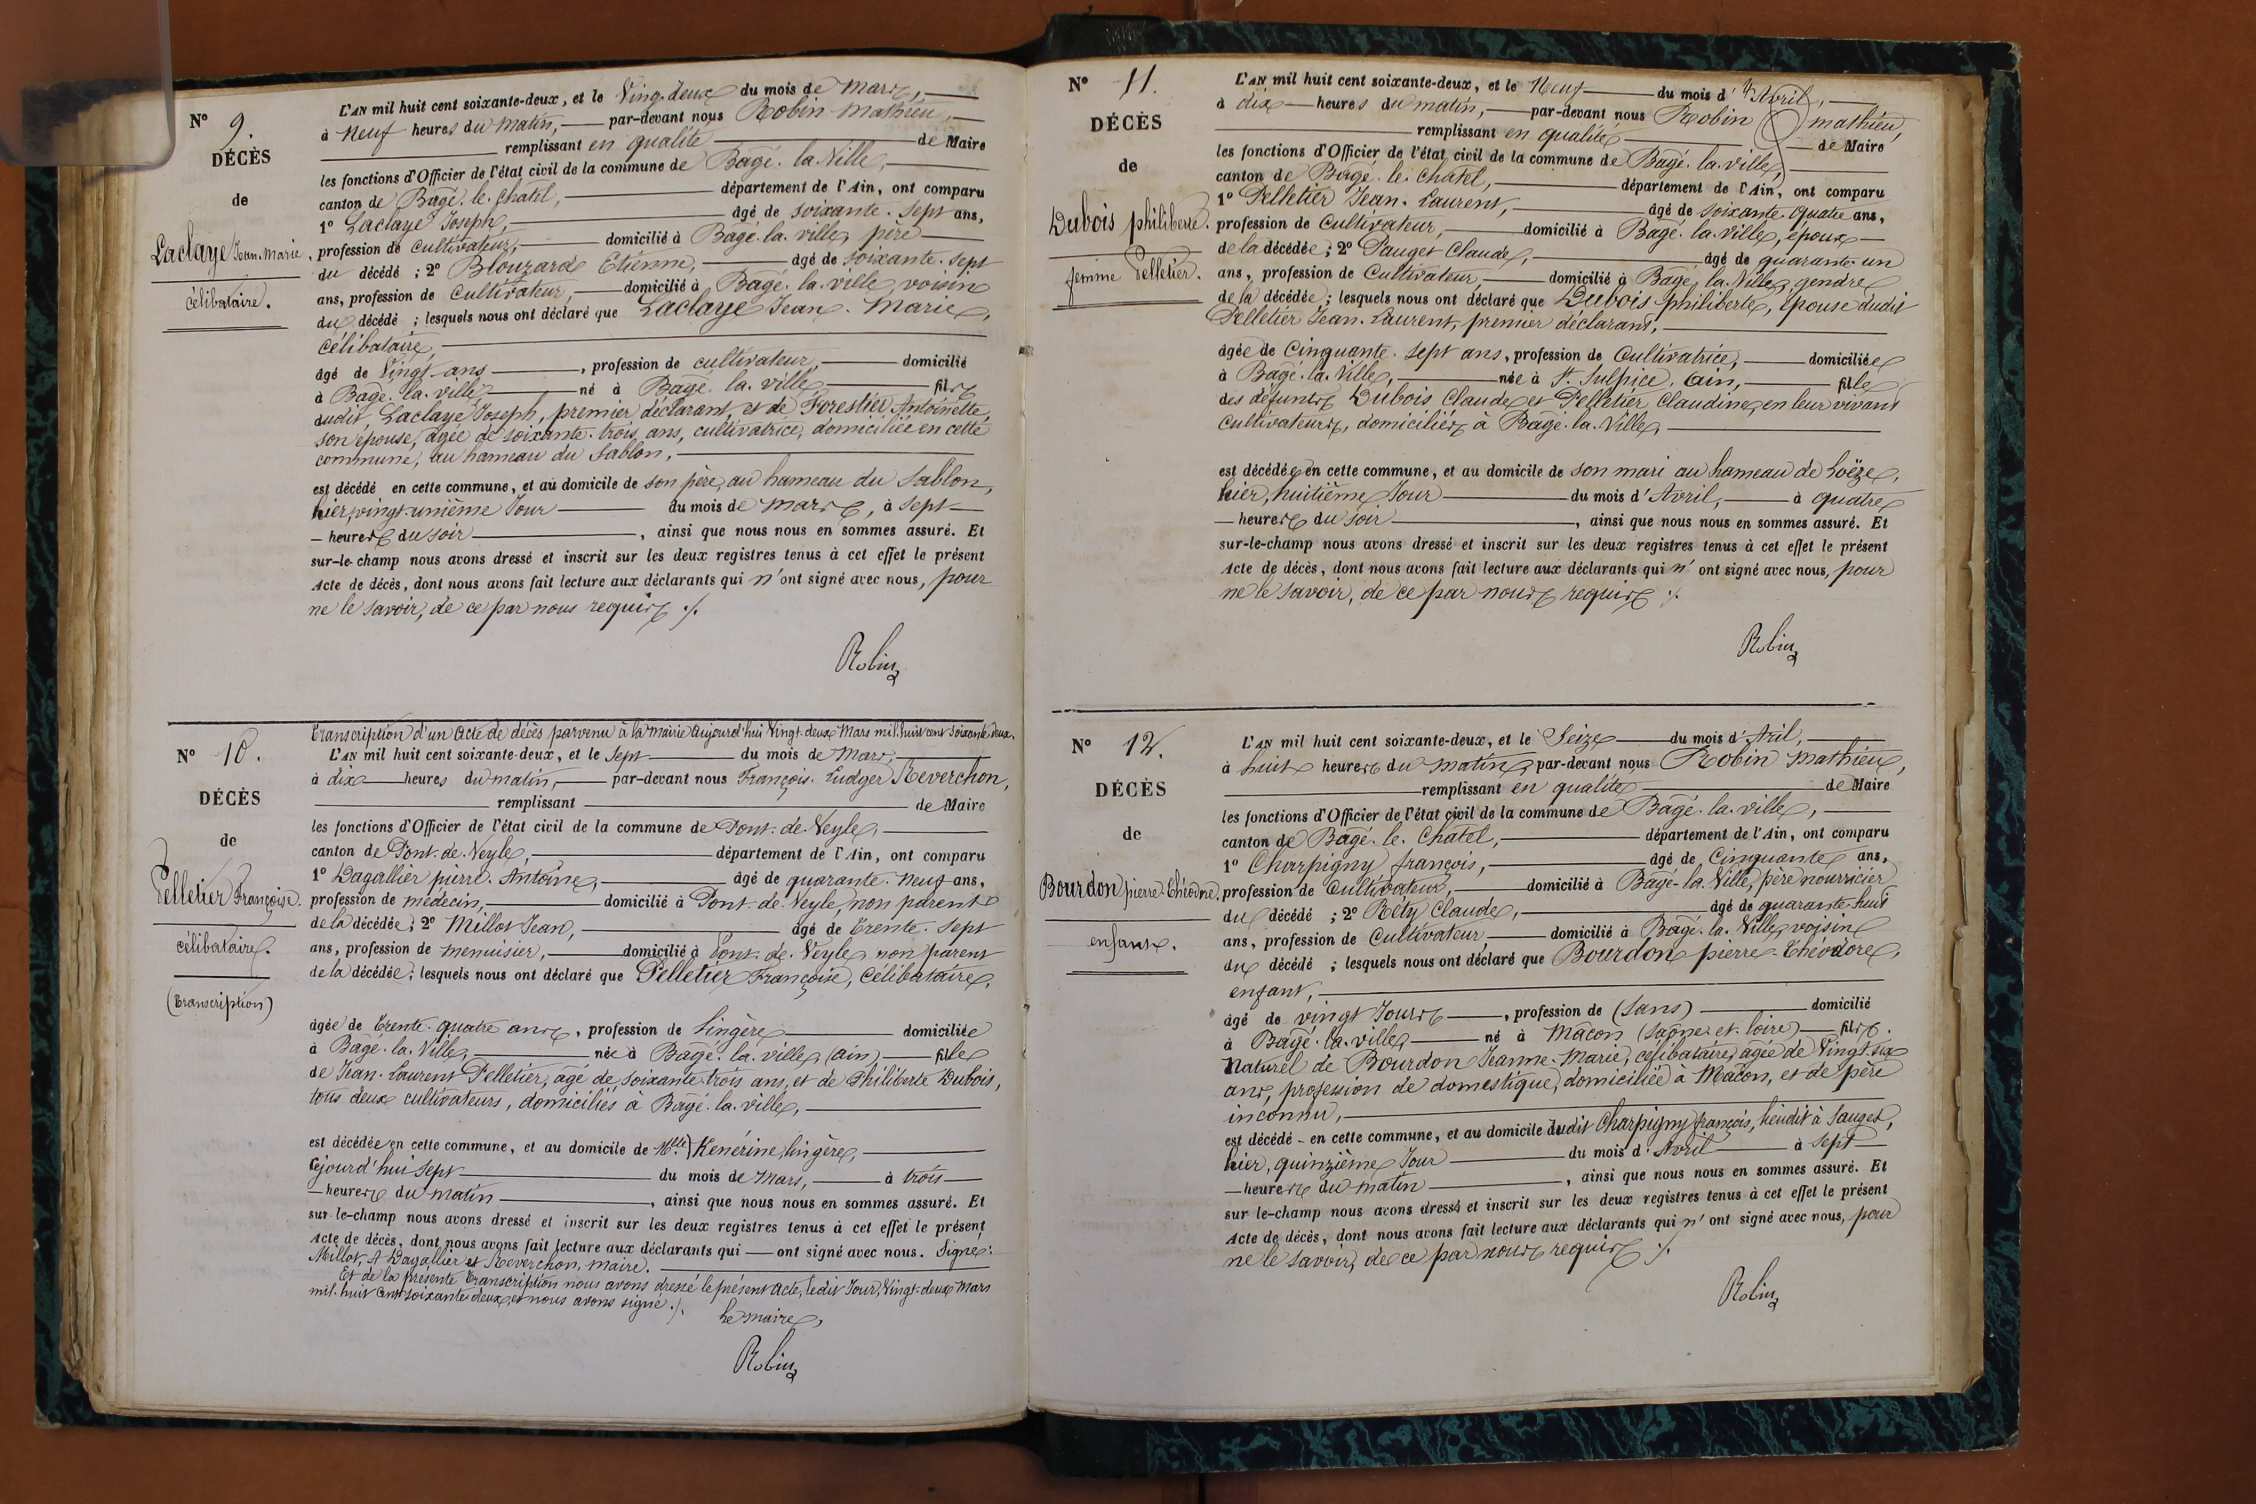 N° 9.
DÉCÈS
de
Laclaye Jean-Marie,
célibataire.
L'AN mil huit cent soixante-deux, et le Vingt-deux du mois de Mars,
à Neuf heures du Matin, par-devant nous Robin Mathieu,
remplissant en qualité de Maire
les fonctions d'Officier de l'état civil de la commune de Bagé-la-Ville,
canton de Bagé-le-Chatel, département de l'Ain, ont comparu
1° Laclaye Joseph, âgé de soixante-sept ans,
profession de cultivateur, domicilié à Bagé-la-ville, père
du décédé ; 2° Blouzard Etienne, âgé de soixante-sept
ans, profession de Cultivateur, domicilié à Bagé-la-ville, voisin
du décédé ; lesquels nous ont déclaré que Laclaye Jean-Marie,
célibataire,
âgé de Vingt ans, profession de cultivateur, domicilié
à Bagé-la-ville, né à Bagé-la-ville, fils
dudit Laclaye Joseph, premier déclarant, et de Forestier Antoinette,
son épouse, âgée de soixante-trois ans, cultivatrice, domiciliée en cette
commune, au hameau du Sablon,
est décédé en cette commune, et au domicile de son père, au hameau du Sablon,
hier, vingt-unième Jour du mois de Mars, à sept
heures du soir, ainsi que nous nous en sommes assuré. Et
sur-le-champ nous avons dressé et inscrit sur les deux registres tenus à cet effet le présent
Acte de décès, dont nous avons fait lecture aux déclarants qui n'ont signé avec nous, pour
ne le savoir, de ce par nous requis ./.
Robin
N° 10.
DÉCÈS
de
Pelletier Françoise.
célibataire.
(Transcription)
Transcription d'un Acte de décès parvenu à la Mairie Aujourd'hui Vingt-deux Mars mil-huit cent soixante deux.
L'AN mil huit cent soixante-deux, et le sept du mois de Mars,
à dix heures du matin, par-devant nous François-Ludger Reverchon,
remplissant de Maire
les fonctions d'Officier de l'état civil de la commune de Pont-de-Veyle,
canton de Pont-de-Veyle, département de l'Ain, ont comparu
1° Dagallier pierre-Antoine, âgé de quarante-Neuf ans,
profession de médecin, domicilié à Pont-de-Veyle, non parent
de la décédée; 2° Millot Jean, âgé de Trente-sept
ans, profession de menuisier, domicilié à Pont-de-Veyle, non parent
de la décédée; lesquels nous ont déclaré que Pelletier Françoise, Célibataire,
âgée de Trente-quatre ans, profession de Lingère domiciliée
à Bagé-la-Ville, née à Bagé-la-ville, (ain) fille
de Jean-Laurent Pelletier, âgé de soixante-trois ans, et de Philiberte Dubois,
tous deux cultivateurs, domiciliés à Bagé-la-ville,
est décédée en cette commune, et au domicile de Mlle Kenérine, lingère,
cejourd'hui sept du mois de Mars, à trois
heures du matin, ainsi que nous nous en sommes assuré. Et
sur-le-champ nous avons dressé et inscrit sur les deux registres tenus à cet effet le présent
Acte de décès, dont nous avons fait lecture aux déclarants qui ont signé avec nous. Signé:
Millot, A Dagallier et Reverchon, maire.
Et de la présente Transcription nous avons dressé le présent acte, ledit Jour, Vingt-deux Mars
mil-huit cent soixante-deux, et nous avons signé ./.
Le maire,
Robin
N° 11.
DÉCÈS
de
Dubois philiberte.
femme Pelletier.
L'AN mil huit cent soixante-deux, et le Neuf du mois d'Avril,
à dix heures du matin, par-devant nous Robin mathieu,
remplissant en qualité de Maire
les fonctions d'Officier de l'état civil de la commune de Bagé-la-ville,
canton de Bagé-le-Chatel, département de l'Ain, ont comparu
1° Pelletier Jean-Laurent, âgé de soixante-quatre ans,
profession de Cultivateur, domicilié à Bagé-la-ville, époux
de la décédée; 2° Pauget Claude, âgé de quarante-un
ans, profession de Cultivateur, domicilié à Bagé-la-Ville, gendre
de la décédée; lesquels nous ont déclaré que Dubois philiberte, épouse dudit
Pelletier Jean-Laurent, premier déclarant,
âgée de Cinquante-sept ans, profession de Cultivatrice, domiciliée
à Bagé-la-Ville, née à St Sulpice, Ain, fille
des défunts Dubois Claude et Pelletier Claudine, en leur vivant
cultivateurs, domiciliés à Bagé-la-Ville,
est décédée en cette commune, et au domicile de son mari au hameau de Loëze,
hier, huitième Jour du mois d'Avril, à quatre
heures du soir, ainsi que nous nous en sommes assuré. Et
sur-le-champ nous avons dressé et inscrit sur les deux registres tenus à cet effet le présent
Acte de décès, dont nous avons fait lecture aux déclarants qui n'ont signé avec nous, pour
ne le savoir, de ce par nous requis ./.
Robin
N° 12.
DÉCÈS
de
Bourdon pierre-Théodore.
enfant.
L'AN mil huit cent soixante-deux, et le Seize du mois d'Avil,
à huit heures du matin, par-devant nous Robin Mathieu,
remplissant en qualité de Maire
les fonctions d'Officier de l'état civil de la commune de Bagé-la-ville,
canton de Bagé-le-Chatel, département de l'Ain, ont comparu
1° Charpigny françois, âgé de Cinquante ans,
profession de Cultivateur, domicilié à Bagé-la-Ville, père nourricier
du décédé ; 2° Réty Claude, âgé de quarante-huit
ans, profession de Cultivateur, domicilié à Bagé-la-Ville, voisin
du décédé ; lesquels nous ont déclaré que Bourdon pierre-Théodore,
enfant,
âgé de vingt Jours, profession de (Sans) domicilié
à Bagé-la-ville, né à Macon (saone-et-loire) fils.
Naturel de Bourdon Jeanne-Marie, célibataire, âgée de Vingt-six
ans, profession de domestique, domiciliée à Macon, et de père
inconnu,
est décédé en cette commune, et au domicile dudit Charpigny françois, lieudit à Sauget,
hier, quinzième Jour du mois d'Avril à sept
heures du matin, ainsi que nous nous en sommes assuré. Et
sur-le-champ nous avons dressé et inscrit sur les deux registres tenus à cet effet le présent
Acte de décès, dont nous avons fait lecture aux déclarants qui n'ont signé avec nous, pour
ne le savoir, de ce par nous requis ./.
Robin